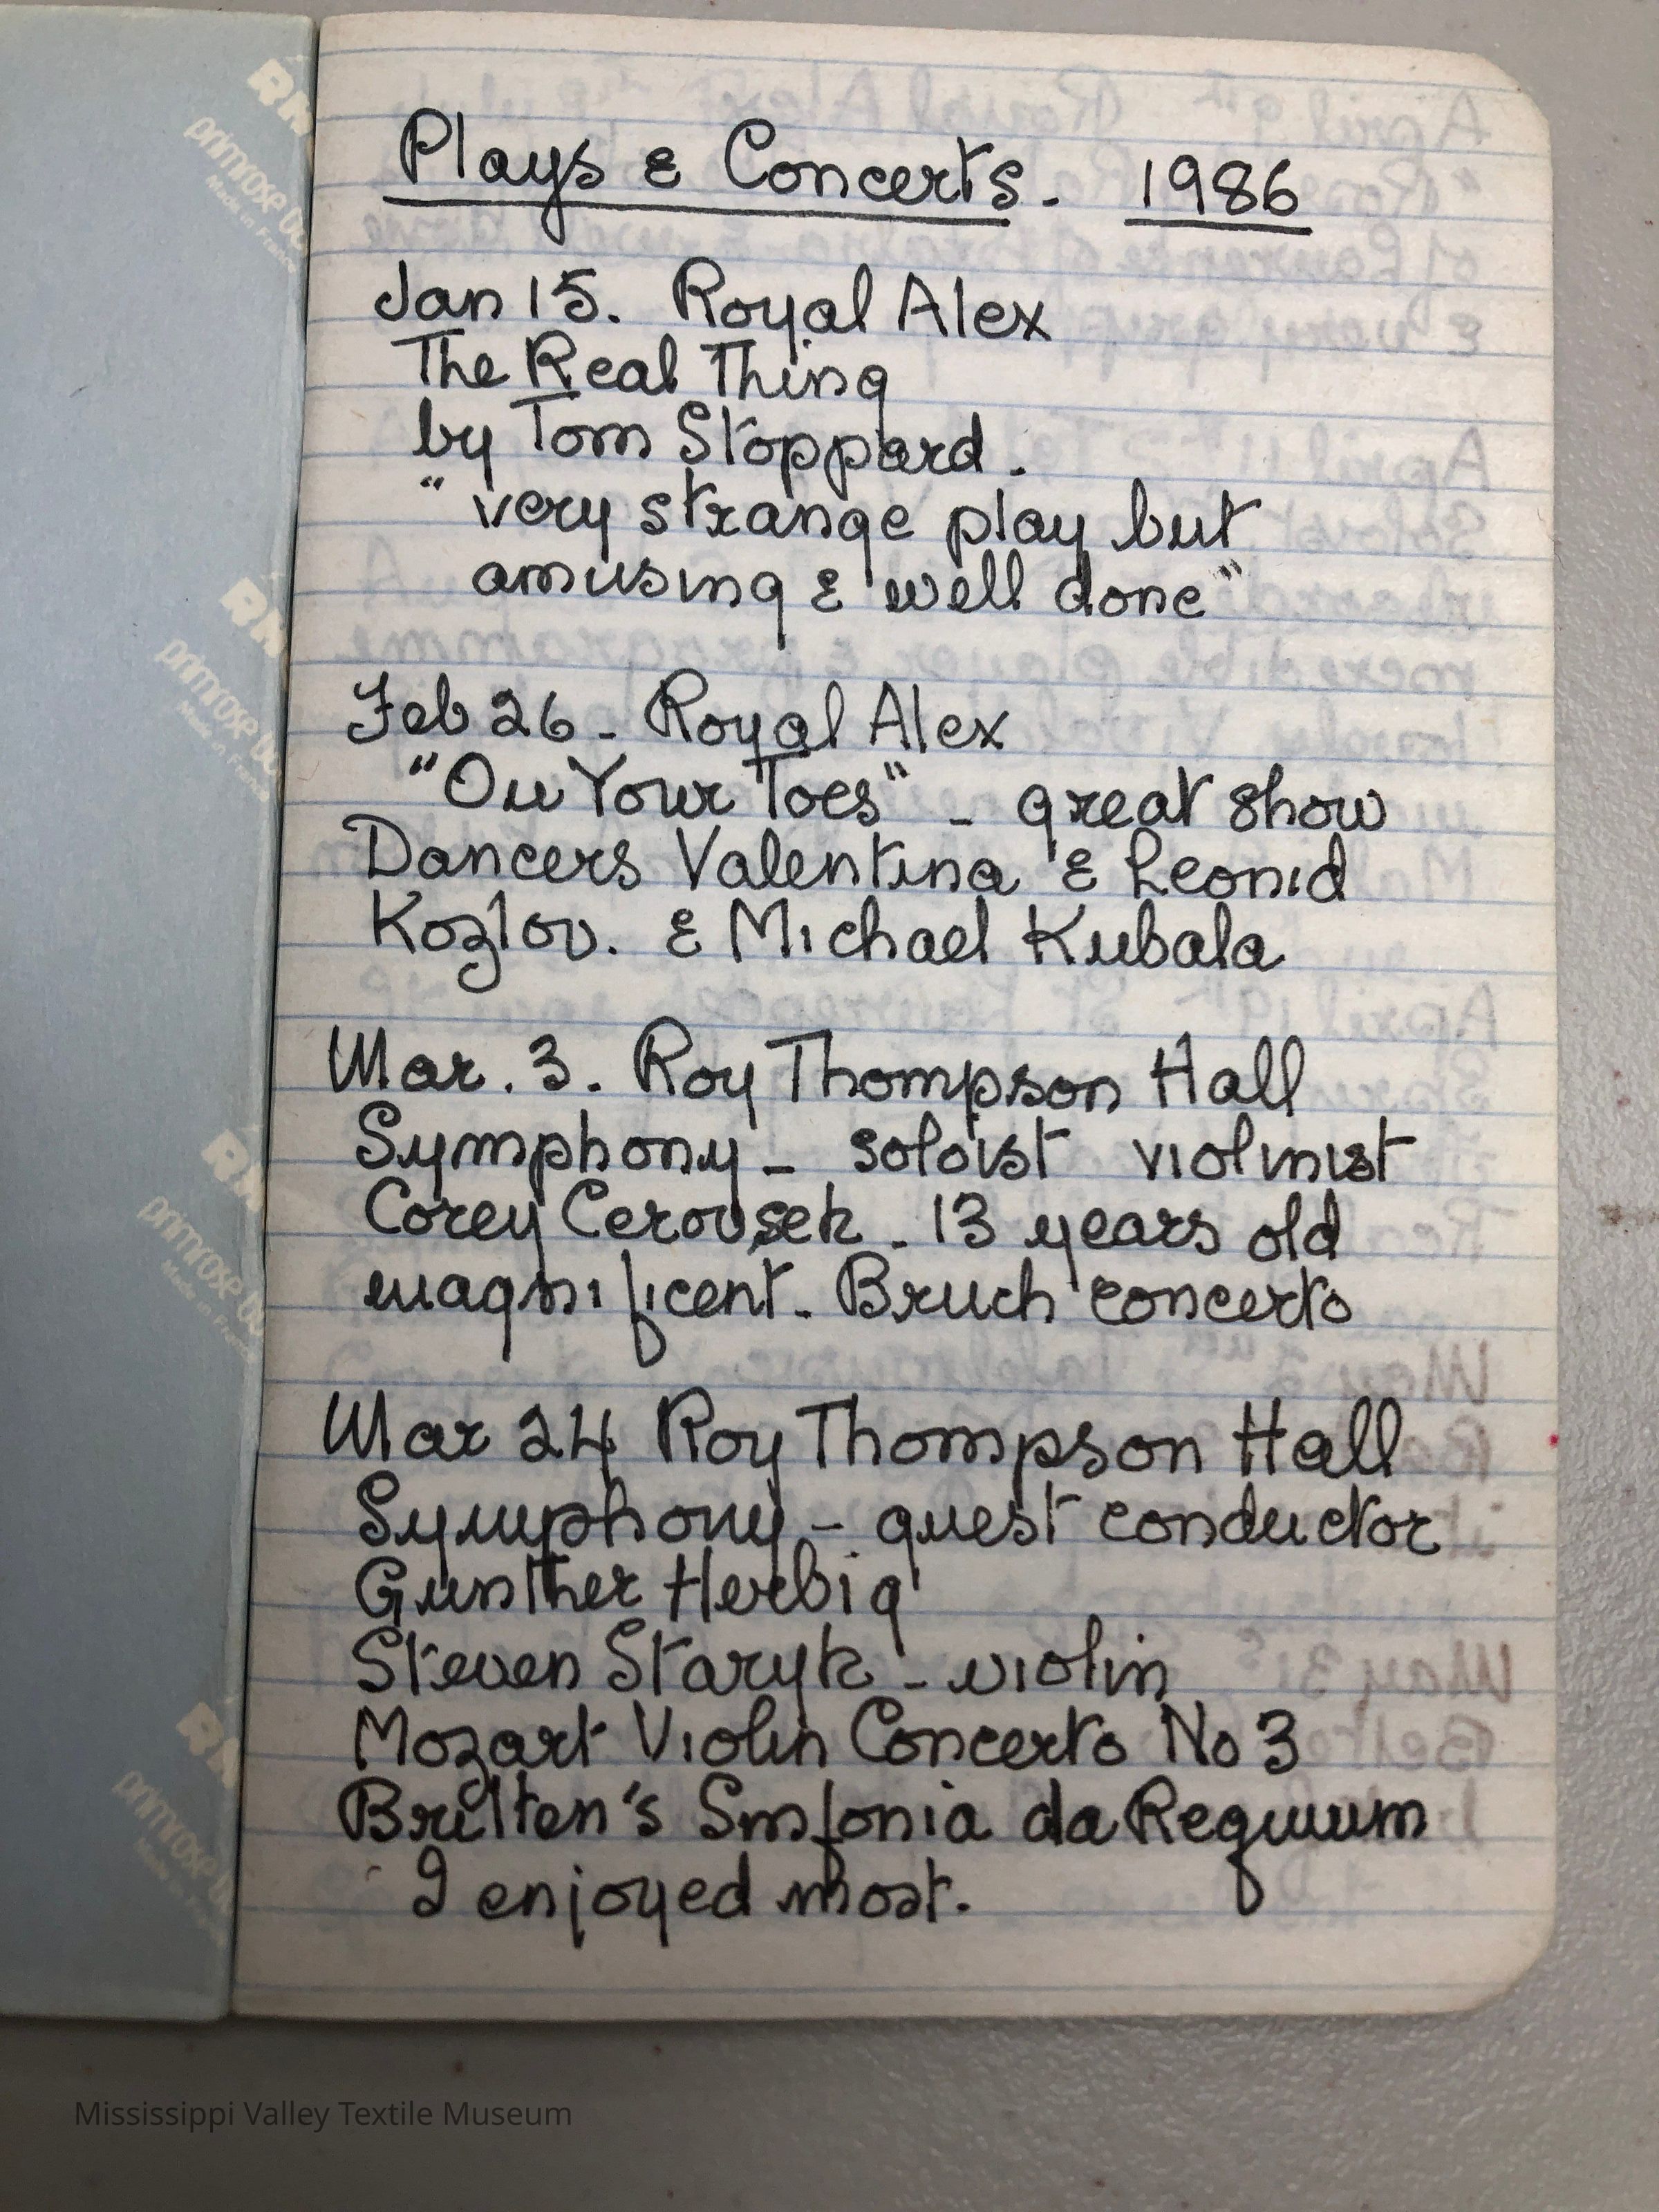 Plays & Concerts. 1986
Jan 15. Royal Alex
The Real Thing
by Tom Stoppard.
"very strange play but
amusing & well done"
Feb 26 - Royal Alex
"On Your Toes" - great show
Dancers Valentina & Leonid
Kozlov. & Michael Kubala
Mar. 3. Roy Thompson Hall
Symphony - soloist violinist
Corey Cerovsek - 13 years old
magnificent - Bruch concerto
Mar 24 Roy Thompson Hall
Symphony - guest conductor
Gunther Herbig
Steven Staryk - violin
Mozart Violin Concerto No 3
Britten's Sinfonia da Requium
I enjoyed most.
primrose
Made in France
primrose
Made in France
primrose
Made in France
primrose
Made in France
Mississippi Valley Textile Museum